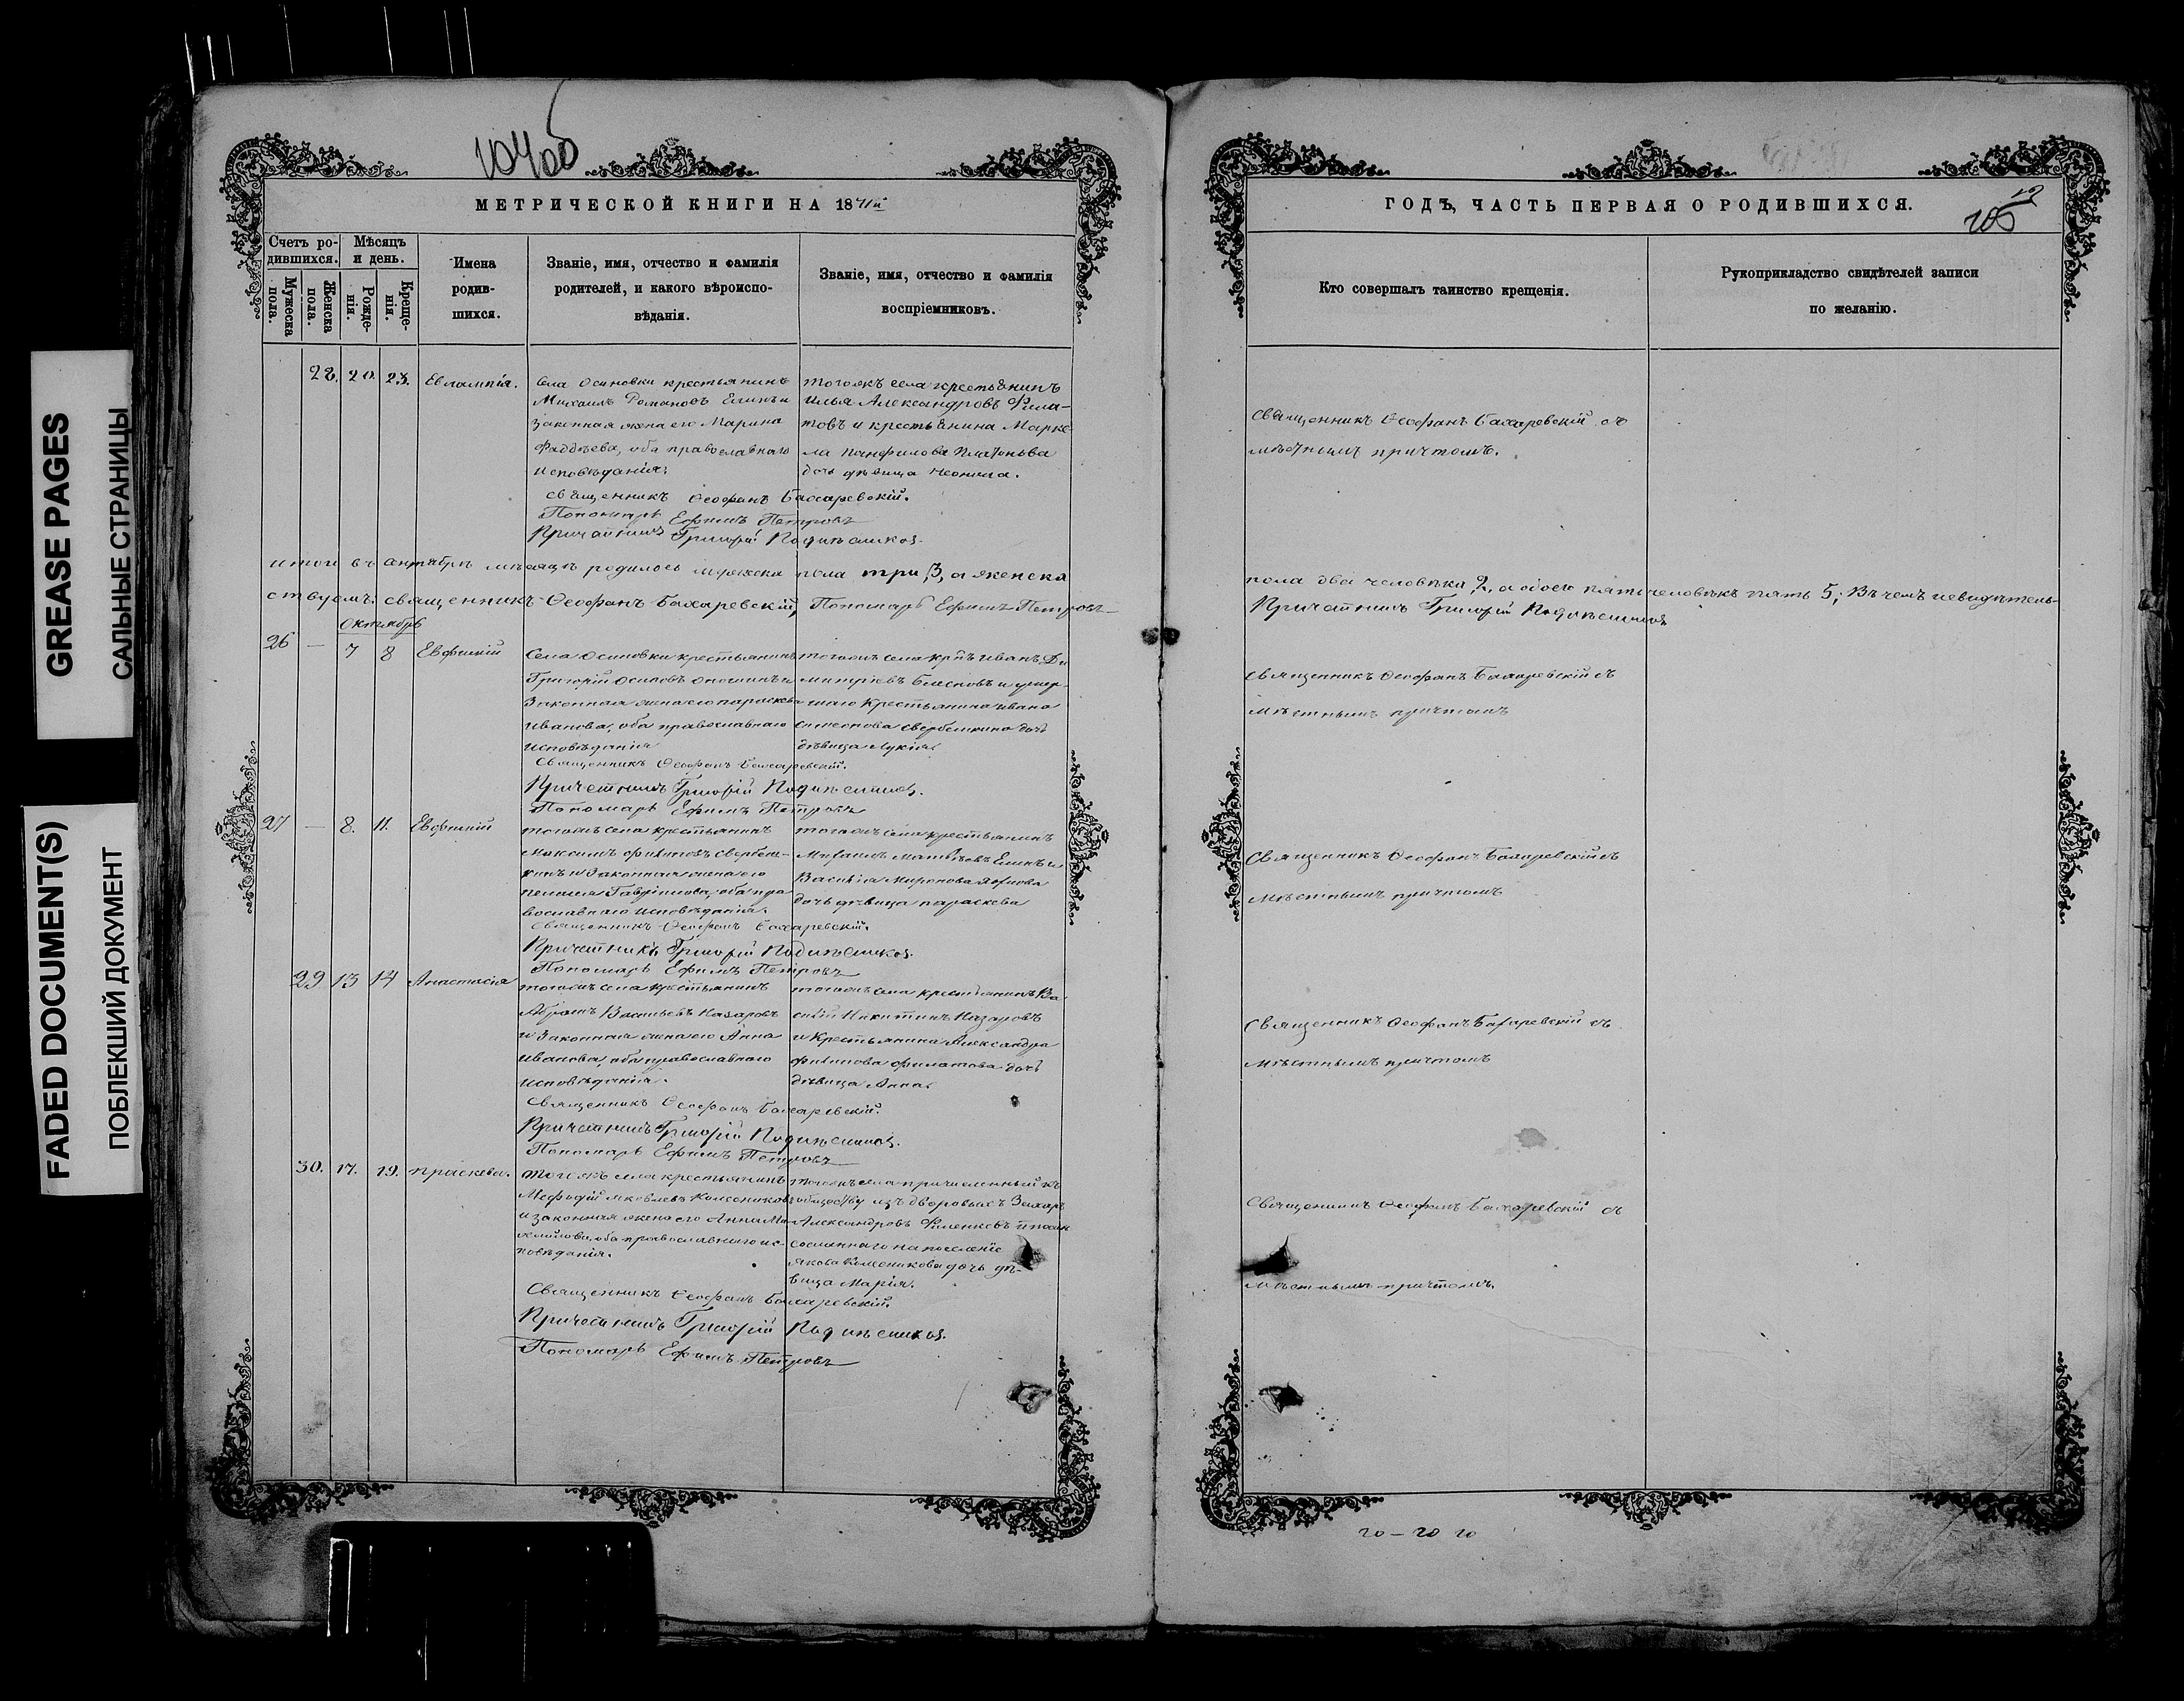 GREASE PAGES
САЛЬНЫЕ СТРАНИЦЫ
FADED DOCUMENT(S)
ПОБЛЕКШИЙ ДОКУМЕНТ
МЕТРИЧЕСКОЙ КНИГИ НА 1871й
Счетъ ро-
дившихся.
Мѣсяцъ
и день.
Мужеска
пола.
Женска
пола.
Рожде-
нія.
Креще-
нія.
Имена
родив-
шихся.
Званіе, имя, отчество и фамилія
родителей, и какого вѣроиспо-
вѣданія.
Званіе, имя, отчество и фамилія
воспріемниковъ.
28. 20. 23. Евлампія.
села Осиновки крестьянинъ
Михаилъ Романовъ Елинъ и
законная жена его Марина
Фаддѣева, оба православнаго
исповѣданія.
тогожъ села крестьянинъ
Илья Александровъ Фила-
товъ и крестьянина Марке-
ла Панфилова Платонова
дочь дѣвица Неонила.
священникъ Ѳеофанъ Бахаревскій.
Пономарь Ефимъ Петровъ
Причетникъ Григорій
итого въ сентябрѣ мѣсяцѣ родилось мужеска пола три, 3, а женска
ствуемъ: священникъ Ѳеофанъ Бахаревскій, Пономарь Ефимъ Петровъ
Октябрь
26 — 7 8 Евфимій
Села Осиновки крестьянинъ
Григорій Осиповъ и
Законная жена его Параскева
Иванова, оба православнаго
исповѣданія
тогожъ села крѣ Иванъ Ди
митріевъ и умер-
шаго Крестьянина Ивана
Симеонова дочь
дѣвица Лукія.
Священникъ Ѳеофанъ Бахаревскій.
Причетникъ Григорій
Пономарь Ефимъ Петровъ
27 — 8. 11. Евфимій
тогожъ села крестьянинъ
Максимъ Филиповъ
и Законная жена его
Гавріилова, оба пра
вославнаго исповѣданія.
тогожъ села крестьянинъ
Михаилъ Матвѣевъ Елинъ и
Василія Миронова
дочь дѣвица Параскева
священникъ Ѳеофанъ Бахаревскій.
Причетникъ Григорій
Пономарь Ефимъ Петровъ
29 13 14 Анастасія
тогожъ села крестьянинъ
Абрамъ Васильевъ Назаровъ
и Законная жена его Анна
Иванова, оба православнаго
исповѣданія.
тогожъ села крестьянинъ Ва-
силій Никитинъ Назаровъ
и Крестьянина Александра
Филипова Филатова дочь
дѣвица Анна.
Священникъ Ѳеофанъ Бахаревскій.
Причетникъ Григорій
Пономарь Ефимъ Петровъ
30. 17. 19. Праскева.
тогожъ села крестьянинъ
Мефодій Яковлевъ Колесниковъ
и законная жена его Анна
оба православнаго ис-
повѣданія.
тогожъ села причисленный къ
обществу изъ дворовыхъ Захаръ
Александровъ
сосланнаго на поселеніе
Якова Колесникова дочь дѣ-
вица Марія.
Священникъ Ѳеофанъ Бахаревскій.
Причетникъ Григорій
Пономарь Ефимъ Петровъ
ГОДЪ, ЧАСТЬ ПЕРВАЯ О РОДИВШИХСЯ.
Кто совершалъ таинство крещенія.
Рукоприкладство свидѣтелей записи
по желанію.
Священникъ Ѳеофанъ Бахаревскій съ
мѣстнымъ причтомъ.
пола два человѣка 2, а обоего пять; Въ чемъ и свидѣтель-
Причетникъ Григорій
Священникъ Ѳеофанъ Бахаревскій съ
Мѣстнымъ причтомъ
Священникъ Ѳеофанъ Бахаревскій съ
Мѣстнымъ причтомъ
Священникъ Ѳеофанъ Бахаревскій съ
Мѣстнымъ причтомъ
Священникъ Ѳеофанъ Бахаревскій съ
мѣстнымъ причтомъ.
20 – 20 20